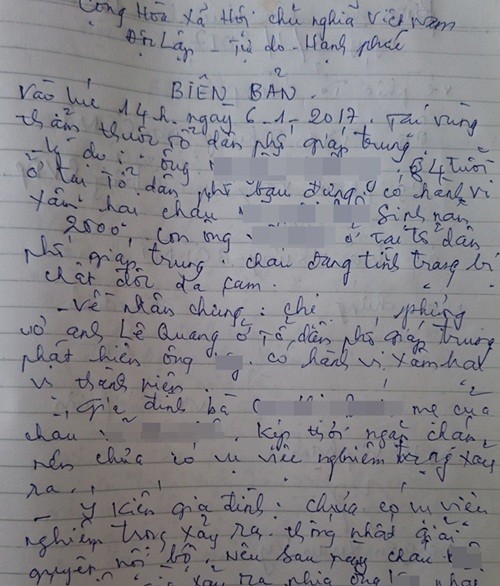 Cộng Hòa Xã Hội chủ nghĩa Việt Nam
Độc Lập - Tự do - Hành phúc
BIÊN BẢN.
Vào lúc 14h. ngày 6-1-2017. Tại vùng
thẩm thuộc tổ dân phố giáp trung.
- Lý do: ông 84 tuổi
ở tại Tổ dân phố có hành vi
xâm hại cháu Sinh năm
2000, con ông ở tại tổ dân
phố giáp trung: cháu đang tình trạng bị
chất độc da cam.
- Về nhân chứng: chị , phóng
vợ anh Lê Quang ở tổ dân phố giáp trung
phát hiện ông có hành vi xâm hại
vị thành niên.
Gia đình bà mẹ của
cháu . Kịp thời ngăn chặn
nên chưa có vụ việc nghiêm trọng xảy
ra.
- Ý kiến gia đình: chưa có vụ việc
nghiêm trọng xảy ra. thống nhất giải
quyết nội bộ. Nếu sau này cháu
xảy ra phía ông